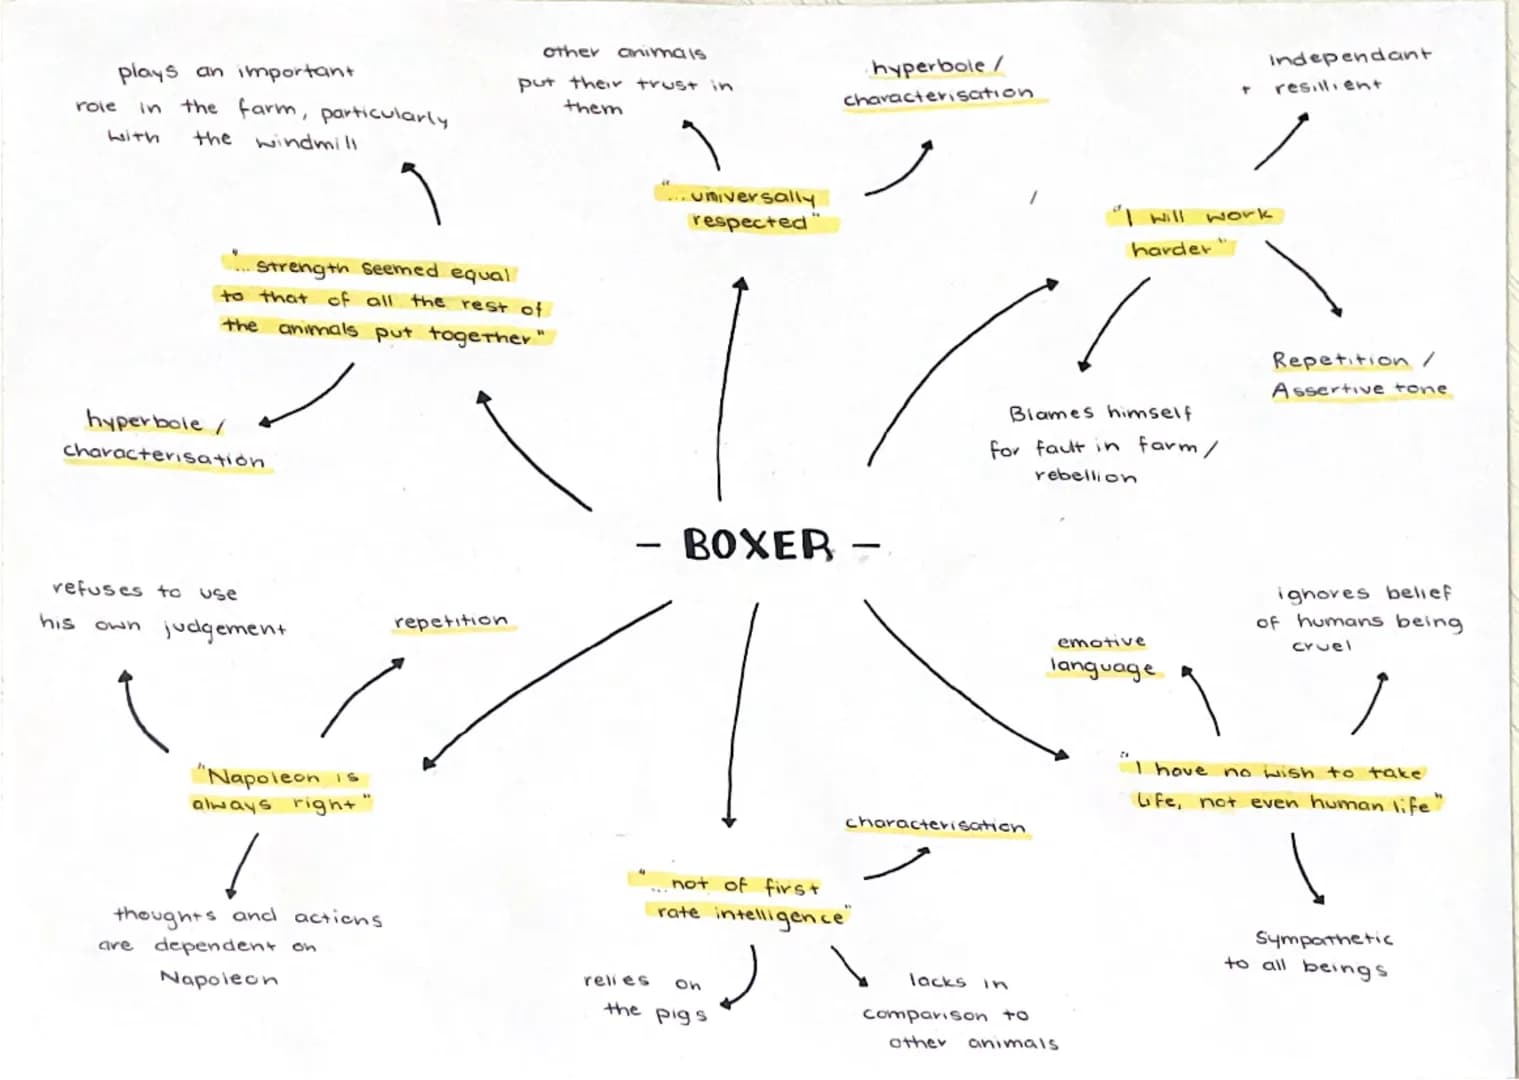 plays an important
role in the farm, particularly
with the windmill
"... strength seemed equal
to that of all the rest of
the animals put together"
hyperbole /
characterisation
other animals
put their trust in
them
hyperbole /
characterisation
"... universally
respected"
independant
+ resillient
"I will work
harder"
Repetition /
Assertive tone
Blames himself
for fault in farm /
rebellion
- BOXER -
refuses to use
his own judgement
repetition
"Napoleon is
always right"
thoughts and actions
are dependent on
Napoleon
characterisation
"... not of first
rate intelligence"
relies on
the pigs
lacks in
comparison to
other animals
emotive
language
ignores belief
of humans being
cruel
"I have no wish to take
life, not even human life"
Sympathetic
to all beings